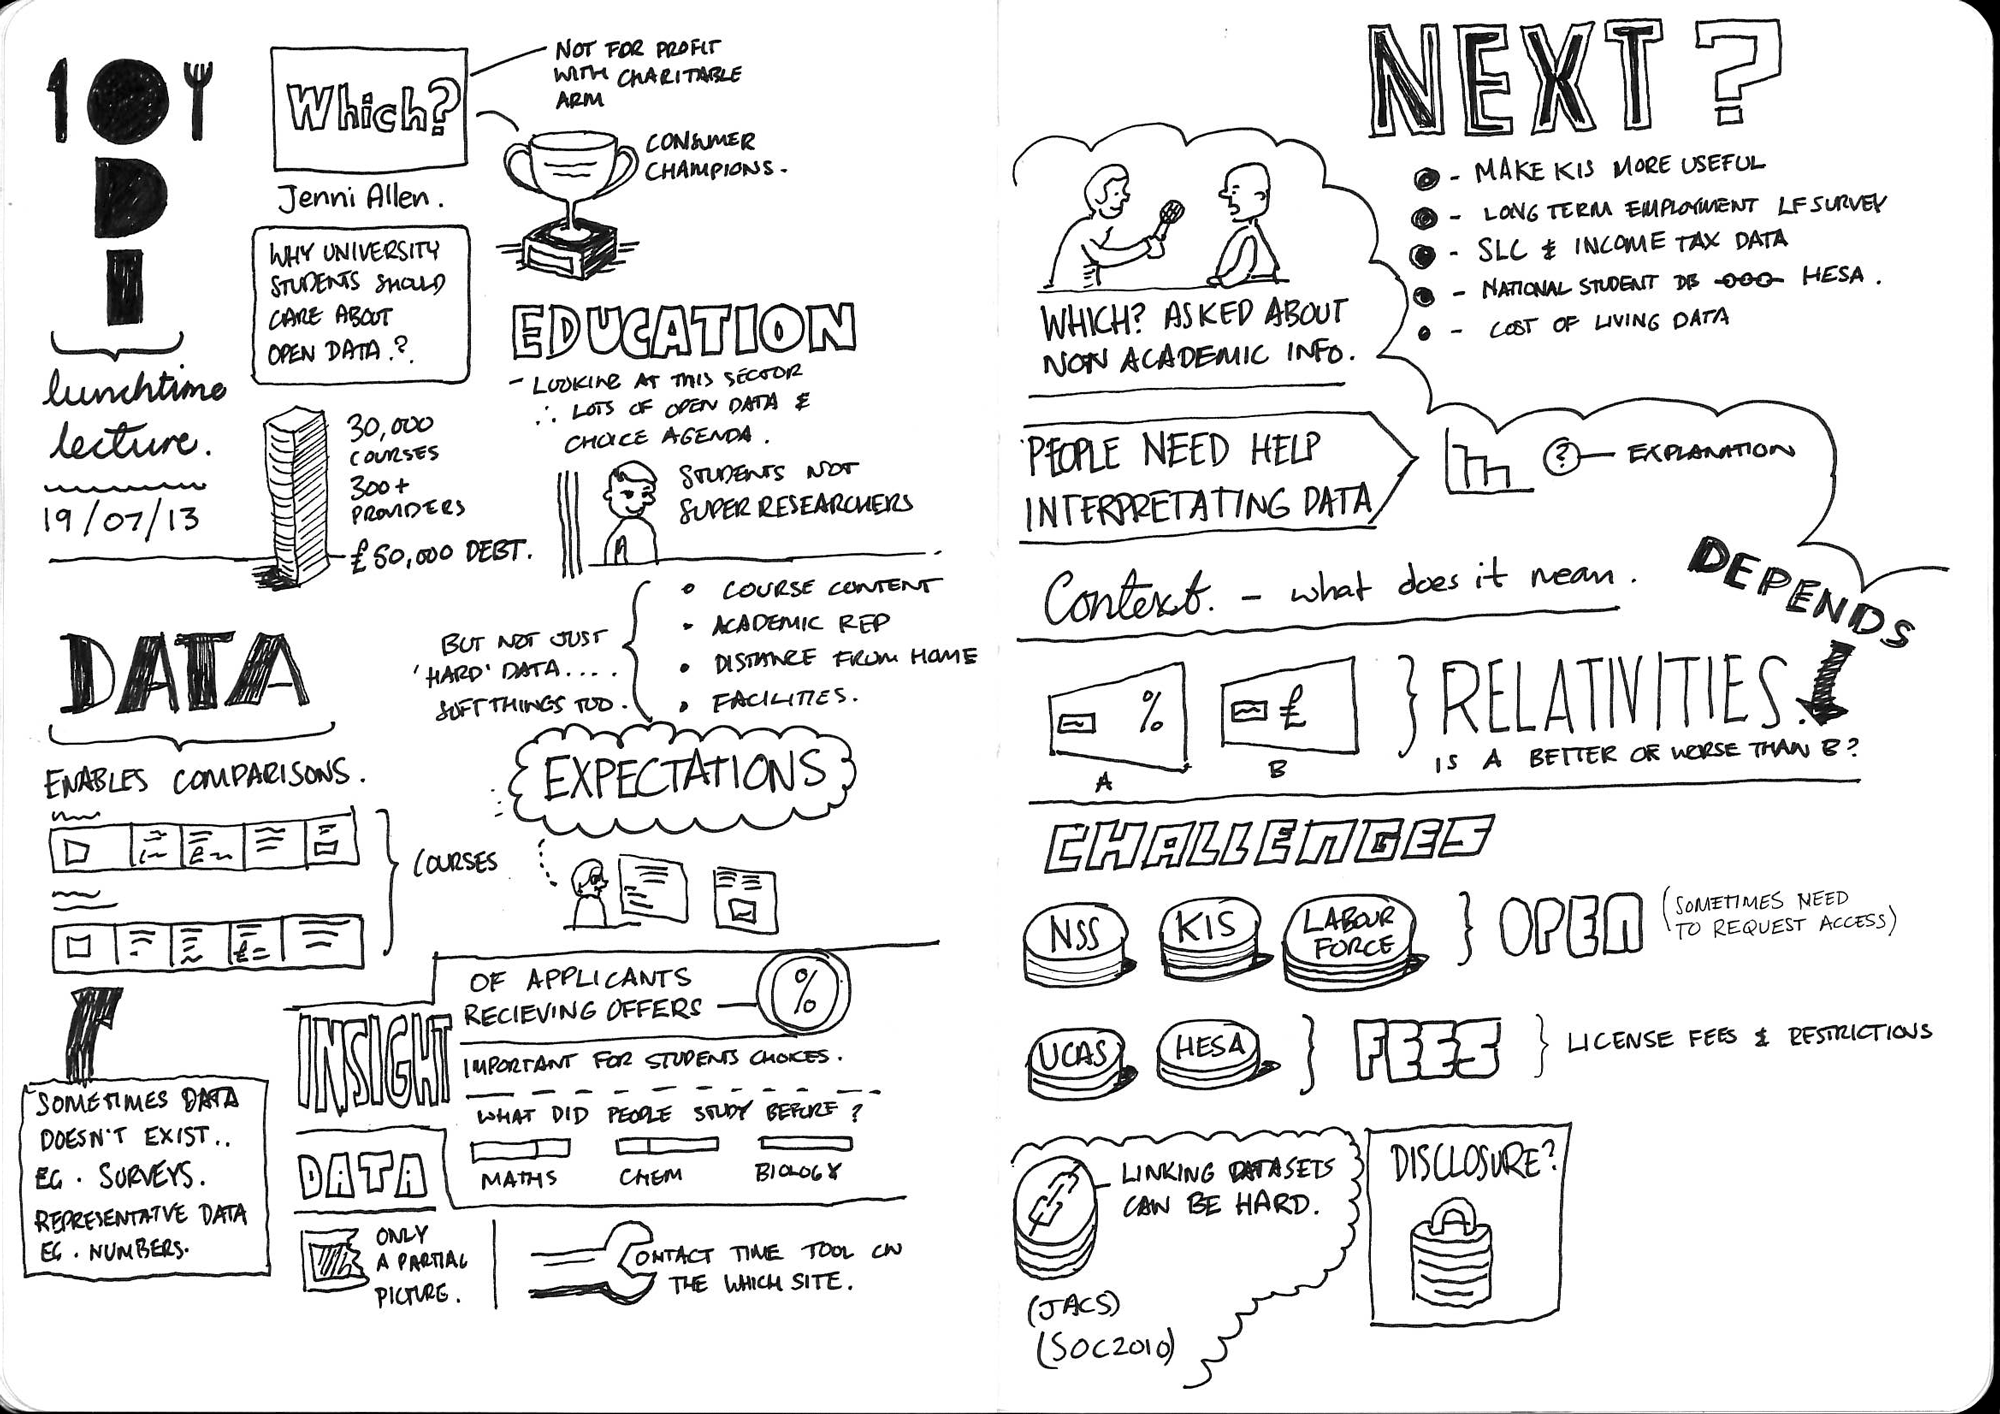 101
ODI
lunchtime
lecture.
19/07/13
Which?
Jenni Allen.
NOT FOR PROFIT
WITH CHARITABLE
ARM
CONSUMER
CHAMPIONS.
WHY UNIVERSITY
STUDENTS SHOULD
CARE ABOUT
OPEN DATA.?
30,000
COURSES
300+
PROVIDERS
£50,000 DEBT.
EDUCATION
- LOOKING AT THIS SECTOR
∴ LOTS OF OPEN DATA &
CHOICE AGENDA.
STUDENTS NOT
SUPER RESEARCHERS
BUT NOT JUST
'HARD' DATA.....
SOFT THINGS TOO.
• COURSE CONTENT
• ACADEMIC REP
• DISTANCE FROM HOME
• FACILITIES.
EXPECTATIONS
DATA
ENABLES COMPARISONS.
COURSES
SOMETIMES DATA
DOESN'T EXIST..
EG. SURVEYS.
REPRESENTATVE DATA
EG. NUMBERS.
INSIGHT
DATA
OF APPLICANTS
RECIEVING OFFERS — %
IMPORTANT FOR STUDENTS CHOICES.
WHAT DID PEOPLE STUDY BEFORE?
MATHS CHEM BIOLOGY
ONLY
A PARTIAL
PICTURE.
CONTACT TIME TOOL ON
THE WHICH SITE.
NEXT?
- MAKE KIS MORE USEFUL
- LONG TERM EMPLOYMENT LF SURVEY
- SLC & INCOME TAX DATA
- NATIONAL STUDENT DB HESA.
- COST OF LIVING DATA
WHICH? ASKED ABOUT
NON ACADEMIC INFO.
PEOPLE NEED HELP
INTERPRETATING DATA
? — EXPLANATION
Context. - what does it mean.
DEPENDS
%
A
£
B
RELATIVITIES.
IS A BETTER OR WORSE THAN B?
CHALLENGES
NSS
KIS
LABOUR
FORCE
OPEN
(SOMETIMES NEED
TO REQUEST ACCESS)
UCAS
HESA
FEES
LICENSE FEES & RESTRICTIONS
LINKING DATASETS
CAN BE HARD.
(JACS)
(SOC2010)
DISCLOSURE?